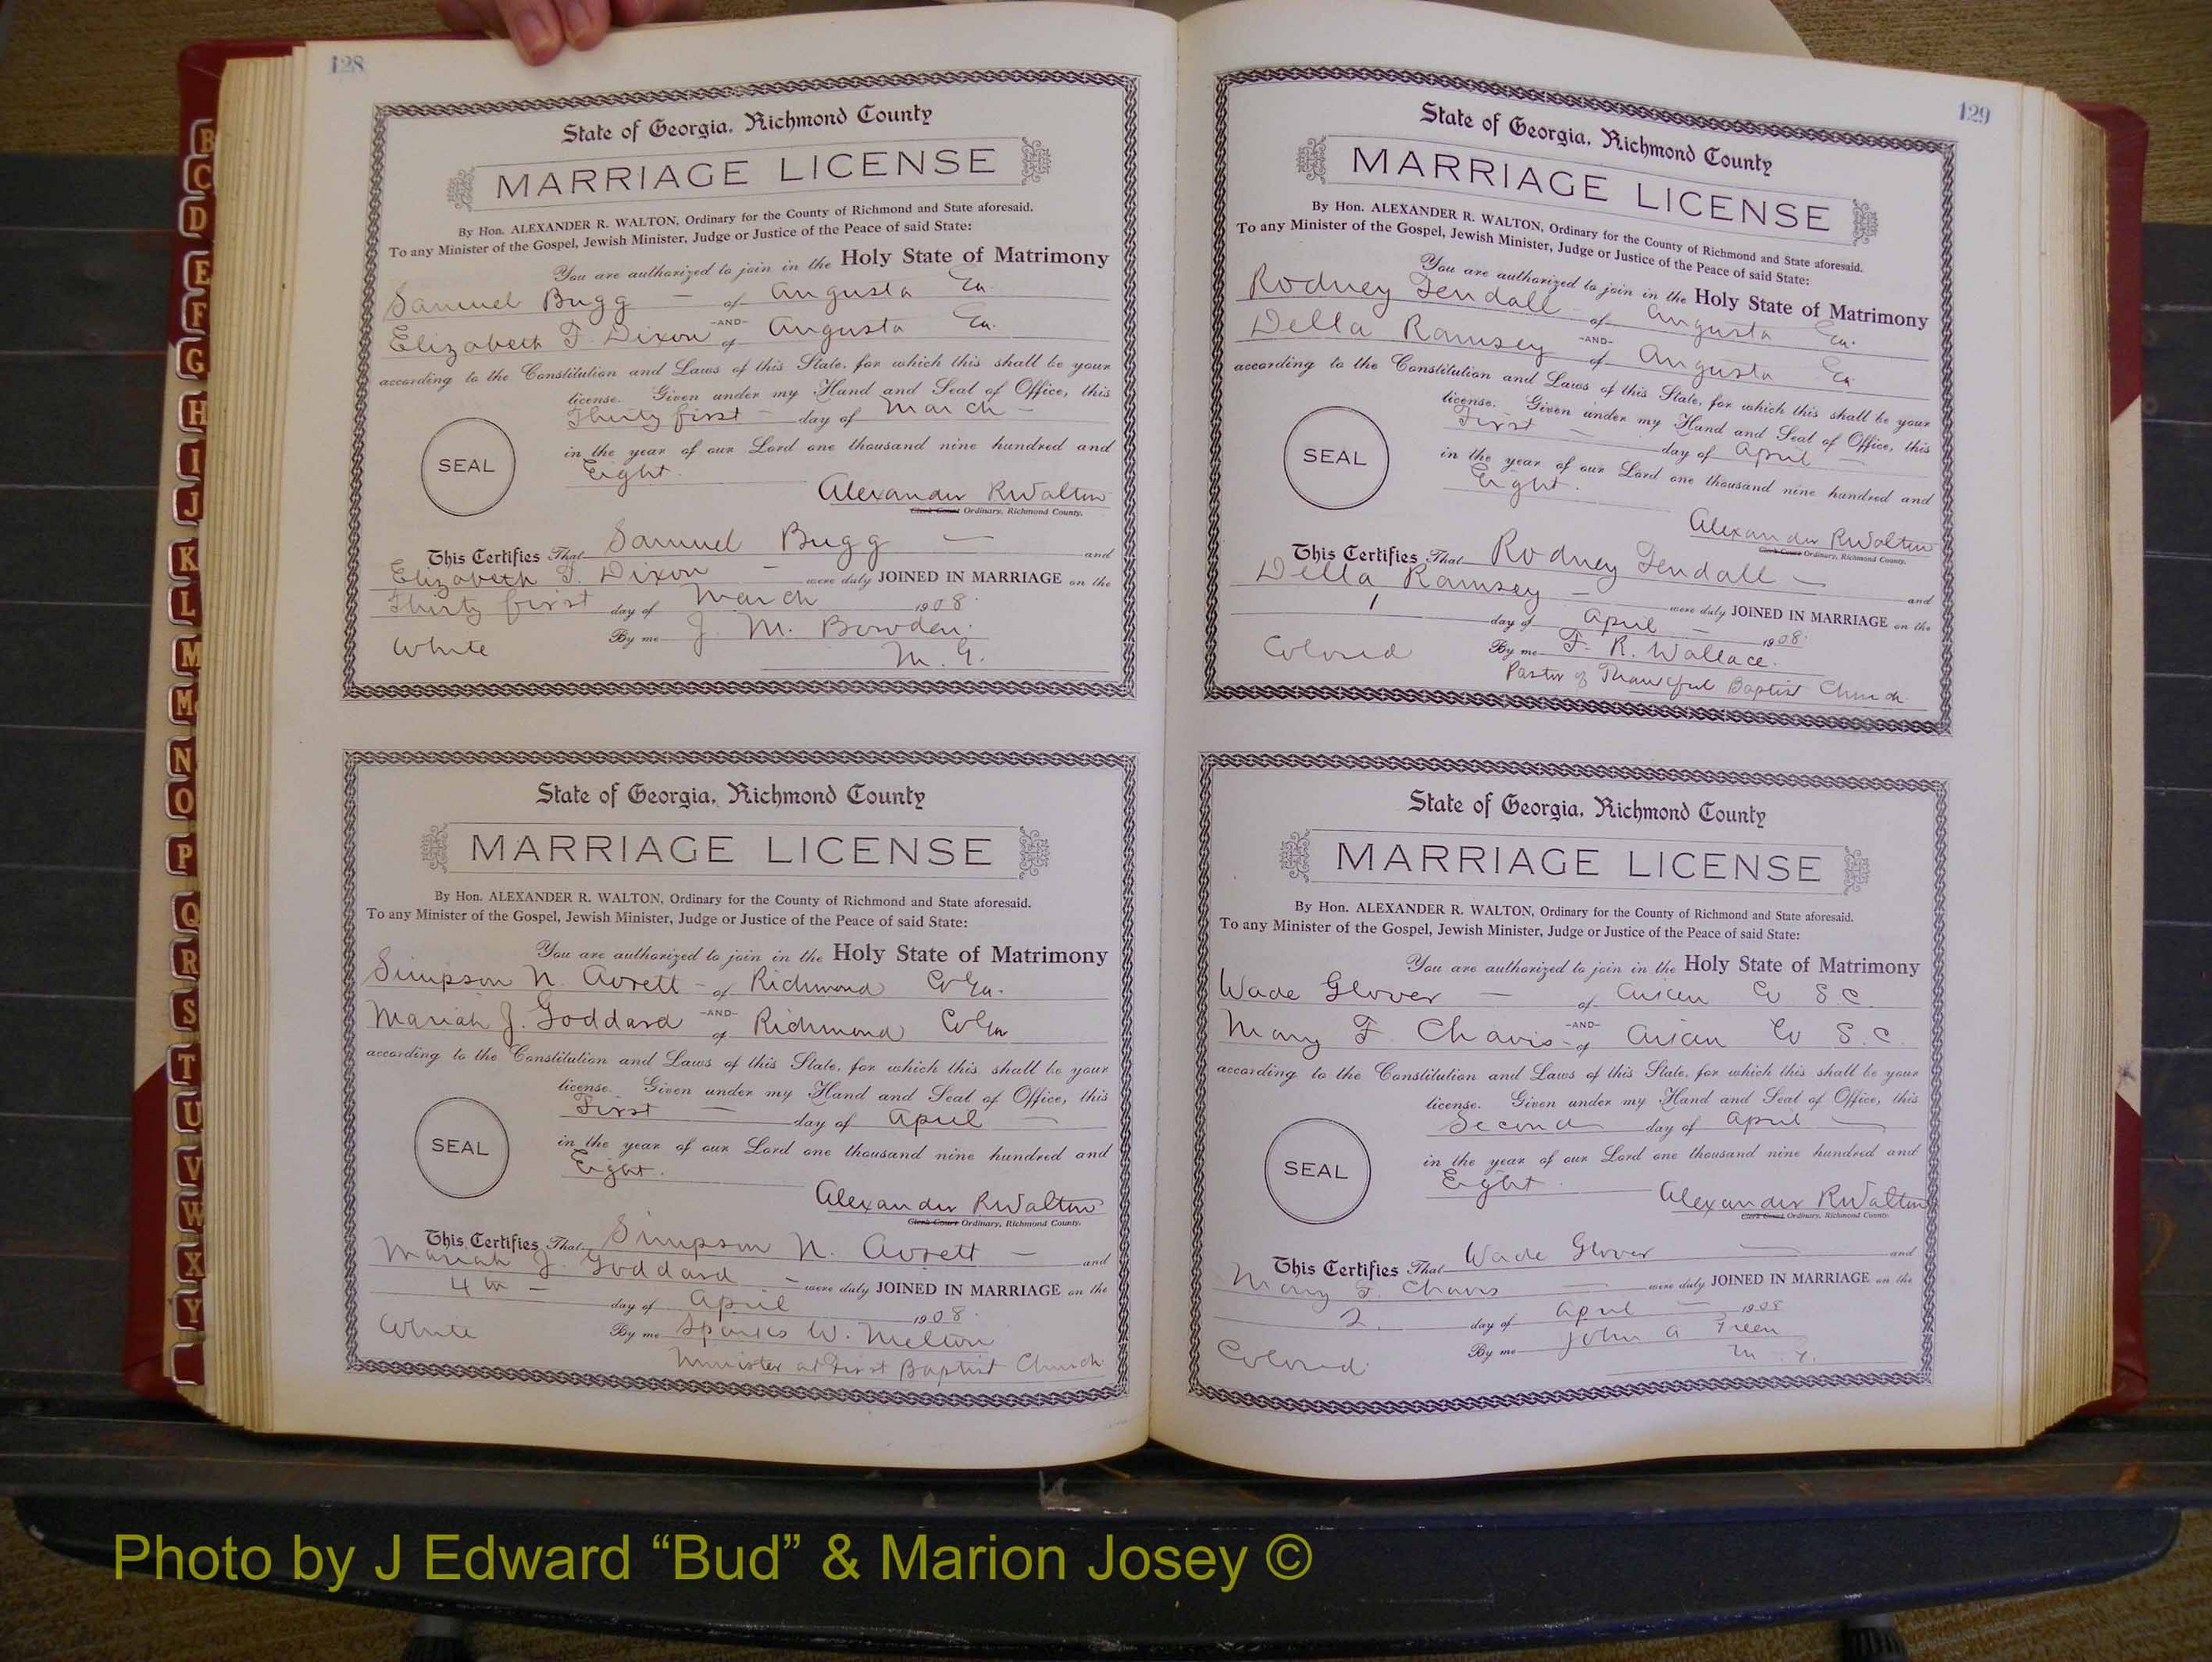 128
State of Georgia, Richmond County
MARRIAGE LICENSE
By Hon. ALEXANDER R. WALTON, Ordinary for the County of Richmond and State aforesaid.
To any Minister of the Gospel, Jewish Minister, Judge or Justice of the Peace of said State:
You are authorized to join in the Holy State of Matrimony
Samuel Bugg — of Augusta Ga.
-AND-
Elizabeth F. Dixon of Augusta Ga.
according to the Constitution and Laws of this State, for which this shall be your
license. Given under my Hand and Seal of Office, this
Thirty first — day of March —
in the year of our Lord one thousand nine hundred and
SEAL
Eight.
Alexander R Walton
Clerk Court Ordinary, Richmond County.
This Certifies That Samuel Bugg — and
Elizabeth F. Dixon — were duly JOINED IN MARRIAGE on the
Thirty first day of March 1908.
White By me J. M. Bowden.
M. G.
State of Georgia, Richmond County
MARRIAGE LICENSE
By Hon. ALEXANDER R. WALTON, Ordinary for the County of Richmond and State aforesaid.
To any Minister of the Gospel, Jewish Minister, Judge or Justice of the Peace of said State:
You are authorized to join in the Holy State of Matrimony
Simpson N. Avrett — of Richmond Co Ga.
-AND-
Mariah J. Goddard of Richmond Co Ga
according to the Constitution and Laws of this State, for which this shall be your
license. Given under my Hand and Seal of Office, this
First — day of April —
in the year of our Lord one thousand nine hundred and
SEAL
Eight.
Alexander R Walton
Clerk Court Ordinary, Richmond County.
This Certifies That Simpson N. Avrett — and
Mariah J. Goddard — were duly JOINED IN MARRIAGE on the
4th — day of April 1908.
White By me Sparks W. Melton
Minister at First Baptist Church.
129
State of Georgia, Richmond County
MARRIAGE LICENSE
By Hon. ALEXANDER R. WALTON, Ordinary for the County of Richmond and State aforesaid.
To any Minister of the Gospel, Jewish Minister, Judge or Justice of the Peace of said State:
You are authorized to join in the Holy State of Matrimony
Rodney Tendall — of Augusta Ga.
-AND-
Della Ramsey of Augusta Ga.
according to the Constitution and Laws of this State, for which this shall be your
license. Given under my Hand and Seal of Office, this
First — day of April —
in the year of our Lord one thousand nine hundred and
SEAL
Eight.
Alexander R Walton
Clerk Court Ordinary, Richmond County.
This Certifies That Rodney Tendall — and
Della Ramsey — were duly JOINED IN MARRIAGE on the
1 day of April — 1908.
Colored By me F. R. Wallace.
Pastor of Thankful Baptist Church.
State of Georgia, Richmond County
MARRIAGE LICENSE
By Hon. ALEXANDER R. WALTON, Ordinary for the County of Richmond and State aforesaid.
To any Minister of the Gospel, Jewish Minister, Judge or Justice of the Peace of said State:
You are authorized to join in the Holy State of Matrimony
Wade Glover — of Aiken Co S.C.
-AND-
Mary F. Chavis of Aiken Co S.C.
according to the Constitution and Laws of this State, for which this shall be your
license. Given under my Hand and Seal of Office, this
Second day of April —
in the year of our Lord one thousand nine hundred and
SEAL
Eight
Alexander R Walton
Clerk Court Ordinary, Richmond County.
This Certifies That Wade Glover — and
Mary F. Chavis — were duly JOINED IN MARRIAGE on the
2. day of April — 1908
Colored. By me John A Green
M. G.
B
C
D
E
F
G
H
I
J
K
L
M
Mc
N
O
P
Q
R
S
T
U
V
W
X
Y
Photo by J Edward “Bud” & Marion Josey ©